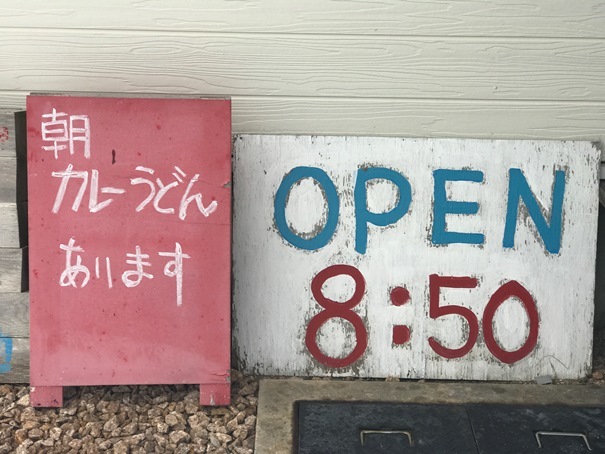 朝
カレーうどん
あります
OPEN
8:50